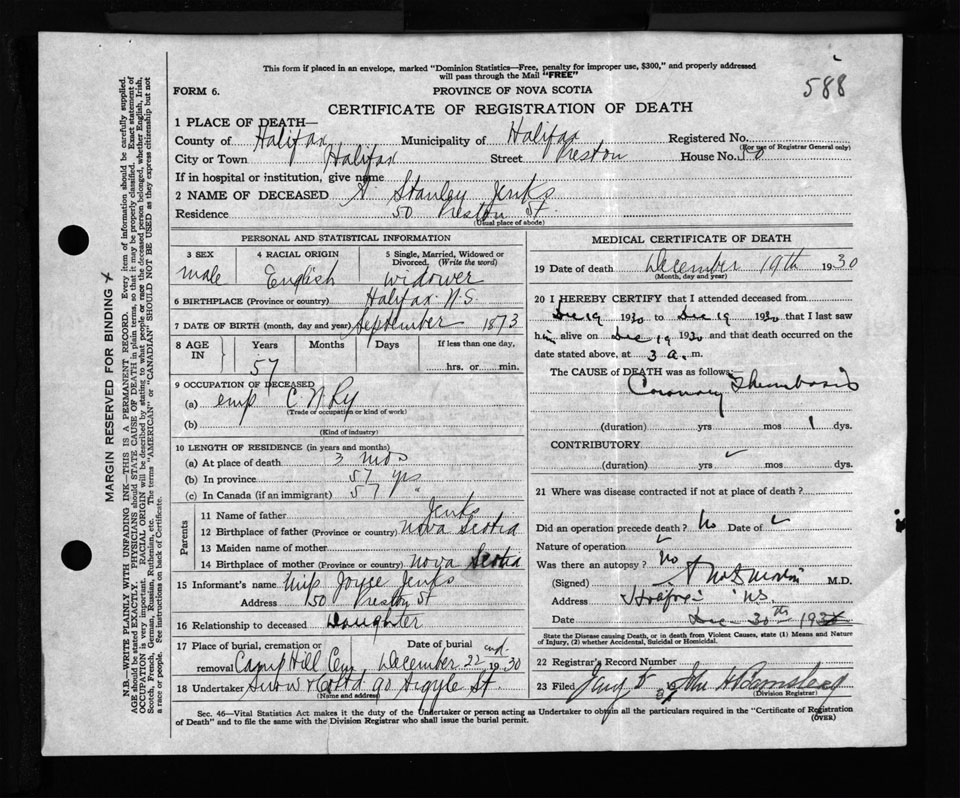 This form if placed in an envelope, marked "Dominion Statistics—Free, penalty for improper use, $300," and properly addressed
will pass through the Mail "FREE"
588
FORM 6.
PROVINCE OF NOVA SCOTIA
CERTIFICATE OF REGISTRATION OF DEATH
1 PLACE OF DEATH—
County of Halifax Municipality of Halifax Registered No.
(For use of Registrar General only)
City or Town Halifax Street Preston House No. 50
If in hospital or institution, give name
2 NAME OF DECEASED A. Stanley Jenks
Residence 50 Preston St.
(Usual place of abode)
PERSONAL AND STATISTICAL INFORMATION
3 SEX 4 RACIAL ORIGIN 5 Single, Married, Widowed or Divorced. (Write the word)
male English widower
6 BIRTHPLACE (Province or country) Halifax N.S.
7 DATE OF BIRTH (month, day and year) September 1873
8 AGE IN Years Months Days If less than one day
57 hrs. or min.
9 OCCUPATION OF DECEASED
(a) emp C N Ry
(Trade or occupation or kind of work)
(b)
(Kind of industry)
10 LENGTH OF RESIDENCE (in years and months)
(a) At place of death 3 mos
(b) In province 57 yrs
(c) In Canada (if an immigrant) 57 "
Parents
11 Name of father Jenks
12 Birthplace of father (Province or country) Nova Scotia
13 Maiden name of mother
14 Birthplace of mother (Province or country) Nova Scotia
15 Informant's name Miss Joyce Jenks
Address 50 Preston St
16 Relationship to deceased Daughter
17 Place of burial, cremation or removal Camp Hill Cem Date of burial December 22nd 1930
18 Undertaker Snow & Co Ltd 90 Argyle St.
(Name and address)
MEDICAL CERTIFICATE OF DEATH
19 Date of death December 19th 1930
(Month, day and year)
20 I HEREBY CERTIFY that I attended deceased from
Dec 19 1930 to Dec 19 1930 that I last saw
him alive on Dec 19 1930 and that death occurred on the
date stated above, at 3 a. m.
The CAUSE of DEATH was as follows:—
Coronary Thrombosis
(duration) yrs mos 1 dys.
CONTRIBUTORY
(duration) yrs mos dys.
21 Where was disease contracted if not at place of death?
Did an operation precede death? No Date of
Nature of operation
Was there an autopsy? No
(Signed) M.D.
Address Halifax N.S.
Date Dec 30th 193
State the Disease causing Death, or in death from Violent Causes, state (1) Means and Nature
of Injury, (2) whether Accidental, Suicidal or Homicidal.
22 Registrar's Record Number
23 Filed Jany 5 John H Barnstead
(Division Registrar)
Sec. 46—Vital Statistics Act makes it the duty of the Undertaker or person acting as Undertaker to obtain all the particulars required in the "Certificate of Registration
of Death" and to file the same with the Division Registrar who shall issue the burial permit.
(OVER)
MARGIN RESERVED FOR BINDING
N.B.—WRITE PLAINLY WITH UNFADING INK—THIS IS A PERMANENT RECORD. Every item of information should be carefully supplied.
AGE should be stated EXACTLY. PHYSICIANS should STATE CAUSE OF DEATH in plain terms, so that it may be properly classified. Exact statement of
OCCUPATION is very important. RACIAL ORIGIN will be described by stating to what people or race the deceased person belonged, whether English, Irish,
Scotch, French, German, Russian, Ruthenian, etc. The terms "AMERICAN" or "CANADIAN" SHOULD NOT BE USED as they express citizenship but not
a race or people. See instructions on back of Certificate.